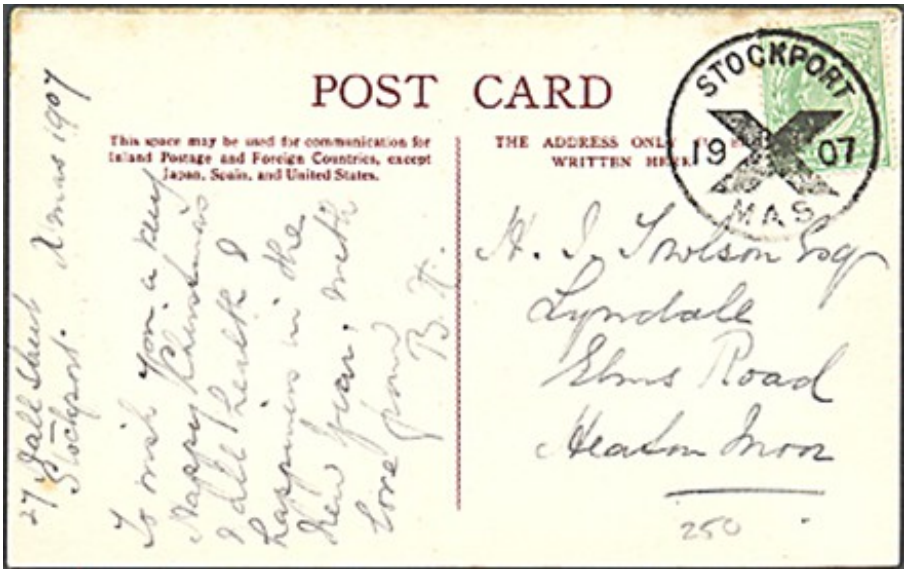 POST CARD
This space may be used for communication for
Inland Postage and Foreign Countries, except
Japan, Spain, and United States.
THE ADDRESS ONLY
WRITTEN HERE
STOCKPORT
19 X 07
MAS
27 Hall Street
Stockport. Xmas 1907
To wish you a very
Happy Christmas
& all health &
happiness in the
New Year, with
love from
B. H.
H. J. Towlson Esq
Lyndale
Elms Road
Heaton Moor
250